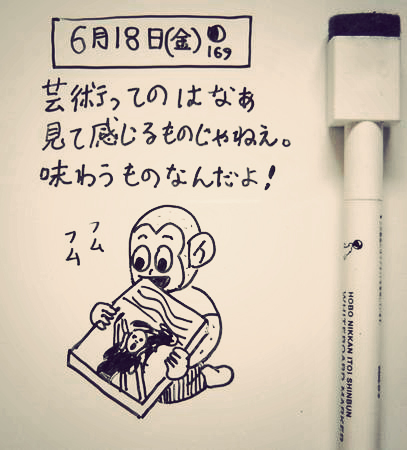 6月18日(金)
169
芸術ってのはなぁ
見て感じるものじゃねえ。
味わうものなんだよ!
フム
フム
HOBO NIKKAN ITOI SHINBUN
WHITEBOARD MARKER